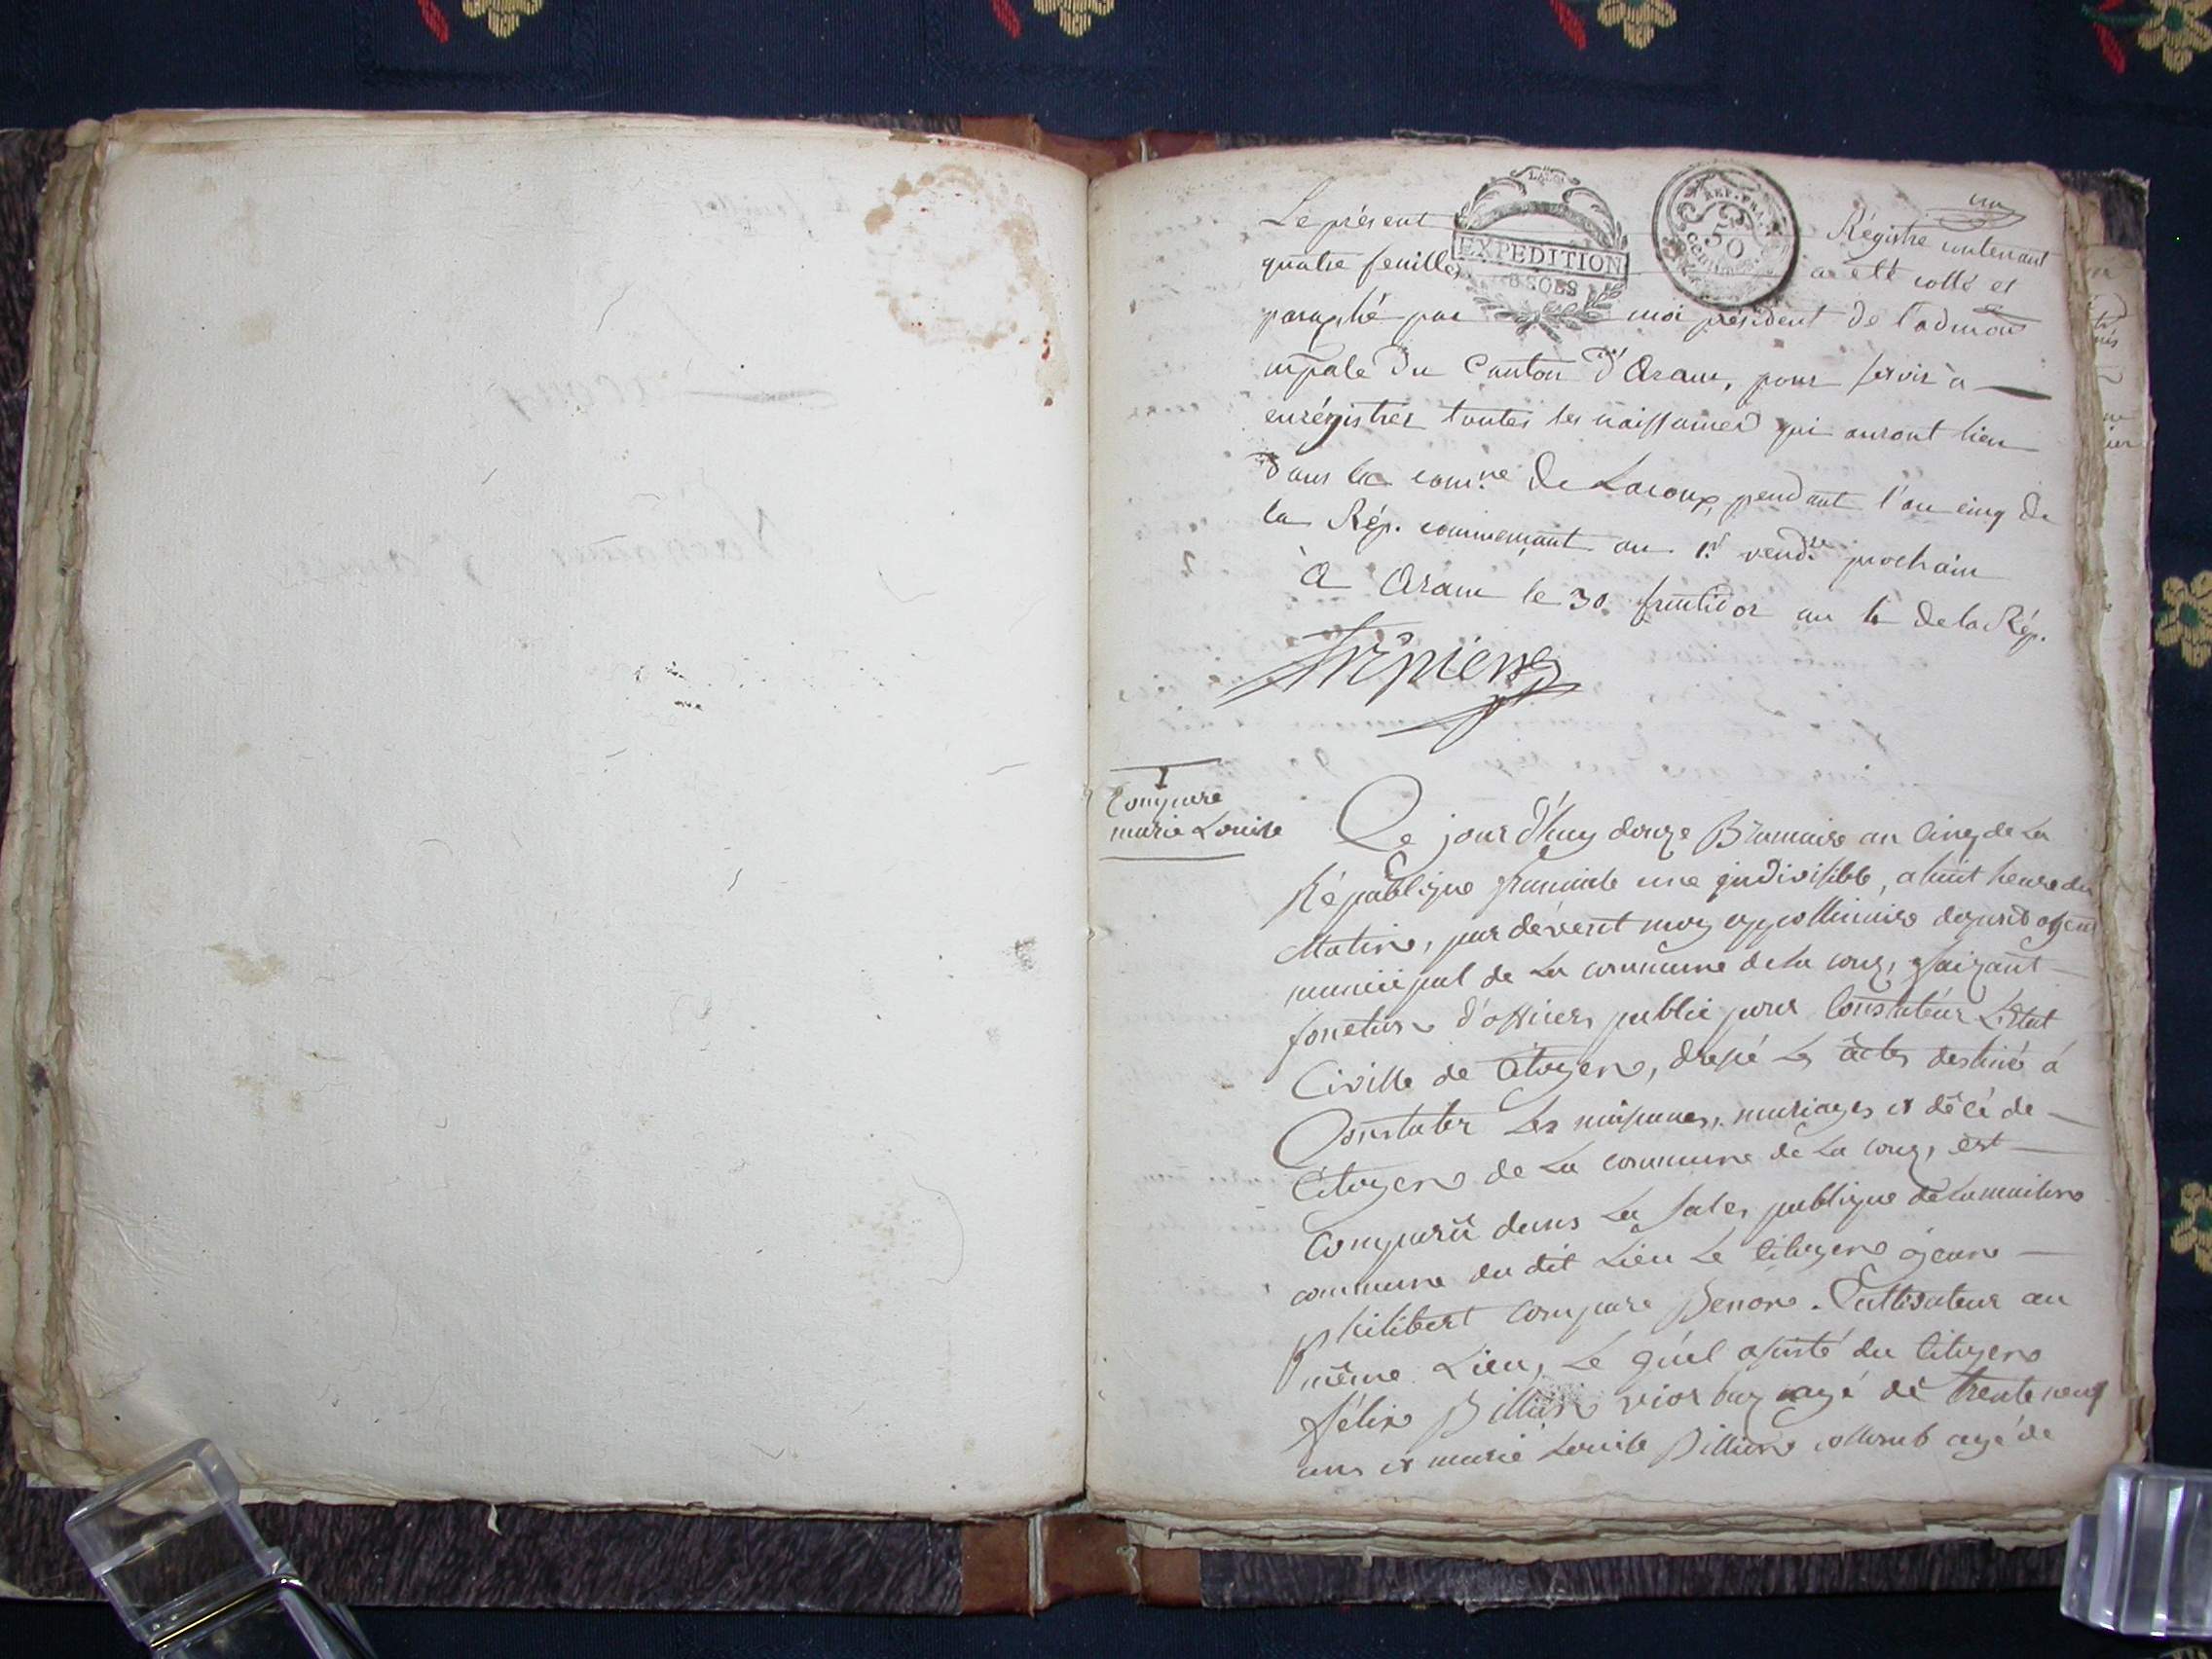 un
Le présent Régistre contenant
quatre feuilles a été cotté et
paraphé par moi président de l'admon
mpale du Canton d'Oram, pour servir à
enrégistrer toutes les naissances qui auront lieu
dans la comne de Lacoux, pendant l'an cinq de
la Rép. commençant au 1er vendre prochain
à Oram le 30 fructidor an 4 de la Rép.
EXPEDITION
REP. FRA.
50
centimes
1
Compare
marie Louise
Ce jour d'huy douze Brumaire an Cinq de La
République francaise une indivisible, a huit heure du
Matin, par dévent moy appollinaire agent
municipal de La commune de la coux, faizant
fonction d'officier public pour Constateur L'Etat
Civille de Citoyen, dressé Les actes destiné á
Constater Les naissances, mariages et décé de
Citoyen de La commune de La coux, est
Comparü dans La Sales publique de La maison
commune du dit Lieu Le Citoyen
philibert compare Cultivateur au
même Lieu, Le quel asisté du Citoyen
félix Billion agé de trente neuf
ans et marie Louise Billion collomb agé de